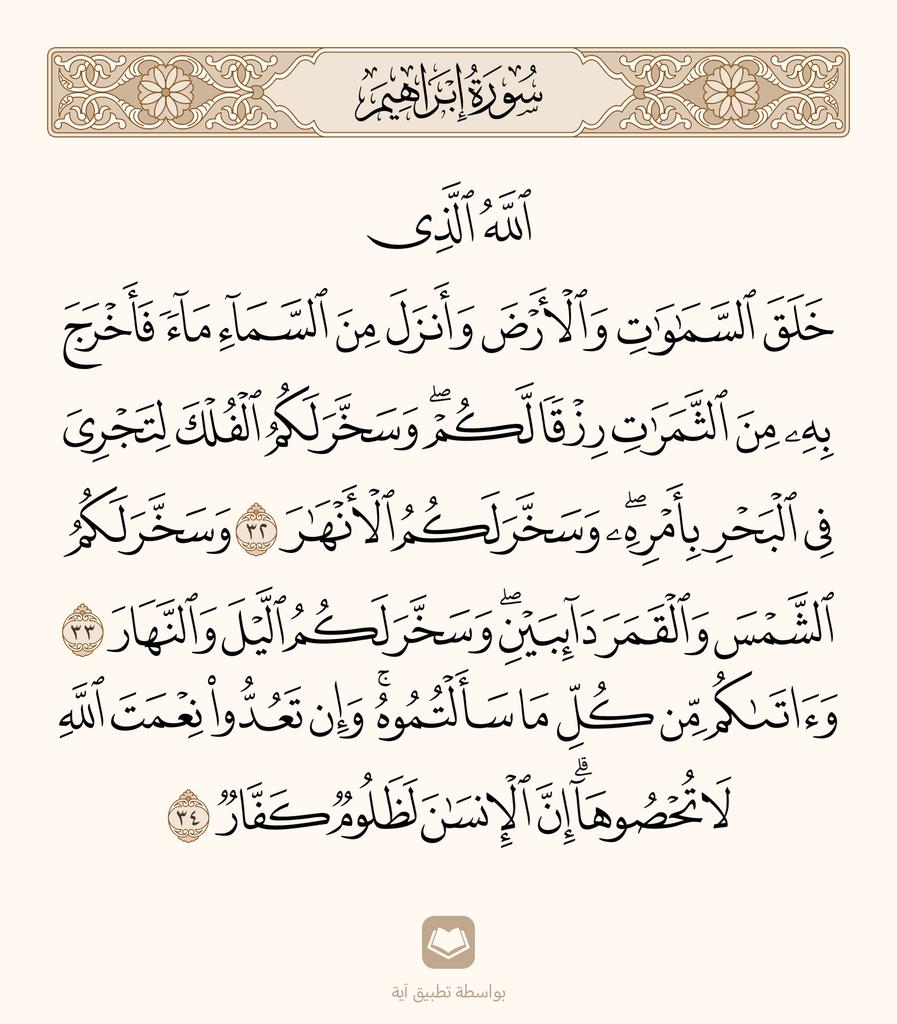 سُورَةُ إِبْرَاهِيمَ
ٱللَّهُ ٱلَّذِى
خَلَقَ ٱلسَّمَـٰوَٰتِ وَٱلْأَرْضَ وَأَنزَلَ مِنَ ٱلسَّمَآءِ مَآءً فَأَخْرَجَ
بِهِۦ مِنَ ٱلثَّمَرَٰتِ رِزْقًا لَّكُمْ ۖ وَسَخَّرَ لَكُمُ ٱلْفُلْكَ لِتَجْرِىَ
فِى ٱلْبَحْرِ بِأَمْرِهِۦ ۖ وَسَخَّرَ لَكُمُ ٱلْأَنْهَـٰرَ ٣٢ وَسَخَّرَ لَكُمُ
ٱلشَّمْسَ وَٱلْقَمَرَ دَآئِبَيْنِ ۖ وَسَخَّرَ لَكُمُ ٱلَّيْلَ وَٱلنَّهَارَ ٣٣
وَءَاتَىٰكُم مِّن كُلِّ مَا سَأَلْتُمُوهُ ۚ وَإِن تَعُدُّوا۟ نِعْمَتَ ٱللَّهِ
لَا تُحْصُوهَآ ۗ إِنَّ ٱلْإِنسَـٰنَ لَظَلُومٌ كَفَّارٌ ٣٤
بواسطة تطبيق آية